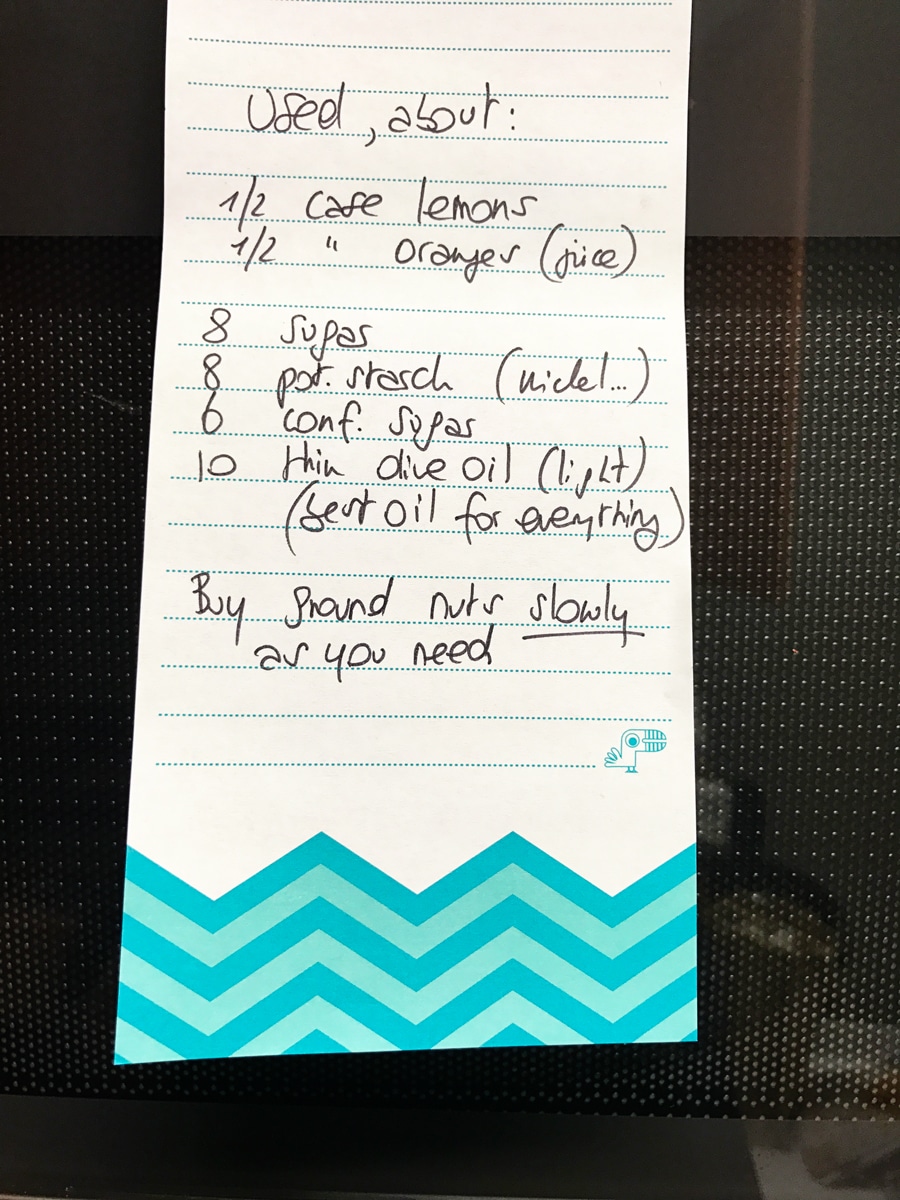 Used, about:
1/2 case lemons
1/2 " oranges (juice)
8 sugar
8 pot. starch (nickel...)
6 conf. sugar
10 thin olive oil (light)
(best oil for everything)
Buy ground nuts slowly
as you need